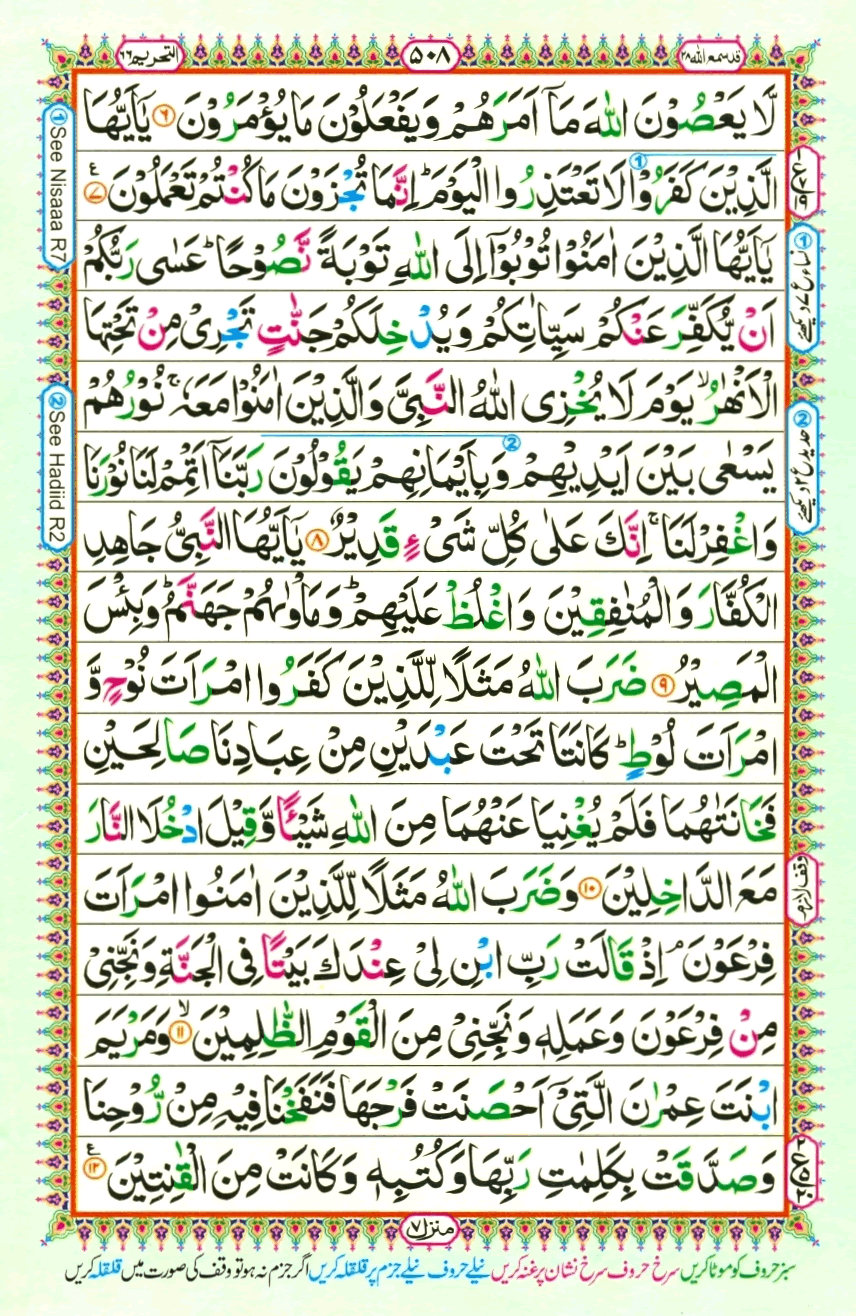 قد سمع الله ٢٨
٥٠٨
التحريم ٦٦
لَّا يَعۡصُوۡنَ اللّٰهَ مَاۤ اَمَرَهُمۡ وَيَفۡعَلُوۡنَ مَا يُؤۡمَرُوۡنَ ٦ يٰۤاَيُّهَا
الَّذِيۡنَ كَفَرُوۡا لَا تَعۡتَذِرُوا الۡيَوۡمَ ؕ اِنَّمَا تُجۡزَوۡنَ مَا كُنۡتُمۡ تَعۡمَلُوۡنَ ٧
يٰۤاَيُّهَا الَّذِيۡنَ اٰمَنُوۡا تُوۡبُوۡۤا اِلَى اللّٰهِ تَوۡبَةً نَّصُوۡحًا ؕ عَسٰى رَبُّكُمۡ
اَنۡ يُّكَفِّرَ عَنۡكُمۡ سَيِّاٰتِكُمۡ وَيُدۡخِلَكُمۡ جَنّٰتٍ تَجۡرِىۡ مِنۡ تَحۡتِهَا
الۡاَنۡهٰرُ ۙ يَوۡمَ لَا يُخۡزِى اللّٰهُ النَّبِىَّ وَالَّذِيۡنَ اٰمَنُوۡا مَعَهٗ ۚ نُوۡرُهُمۡ
يَسۡعٰى بَيۡنَ اَيۡدِيۡهِمۡ وَبِاَيۡمَانِهِمۡ يَقُوۡلُوۡنَ رَبَّنَاۤ اَتۡمِمۡ لَنَا نُوۡرَنَا
وَاغۡفِرۡ لَنَا ۚ اِنَّكَ عَلٰى كُلِّ شَىۡءٍ قَدِيۡرٌ ٨ يٰۤاَيُّهَا النَّبِىُّ جَاهِدِ
الۡكُفَّارَ وَالۡمُنٰفِقِيۡنَ وَاغۡلُظۡ عَلَيۡهِمۡ ؕ وَمَاۡوٰىهُمۡ جَهَنَّمُ ؕ وَبِئۡسَ
الۡمَصِيۡرُ ٩ ضَرَبَ اللّٰهُ مَثَلًا لِّلَّذِيۡنَ كَفَرُوا امۡرَاَتَ نُوۡحٍ وَّ
امۡرَاَتَ لُوۡطٍ ؕ كَانَتَا تَحۡتَ عَبۡدَيۡنِ مِنۡ عِبَادِنَا صَالِحَيۡنِ
فَخَانَتٰهُمَا فَلَمۡ يُغۡنِيَا عَنۡهُمَا مِنَ اللّٰهِ شَيۡـًٔا وَّقِيۡلَ ادۡخُلَا النَّارَ
مَعَ الدّٰخِلِيۡنَ ١٠ وَضَرَبَ اللّٰهُ مَثَلًا لِّلَّذِيۡنَ اٰمَنُوا امۡرَاَتَ
فِرۡعَوۡنَ ۘ اِذۡ قَالَتۡ رَبِّ ابۡنِ لِىۡ عِنۡدَكَ بَيۡتًا فِى الۡجَنَّةِ وَنَجِّنِىۡ
مِنۡ فِرۡعَوۡنَ وَعَمَلِهٖ وَنَجِّنِىۡ مِنَ الۡقَوۡمِ الظّٰلِمِيۡنَ ۙ ١١ وَمَرۡيَمَ
ابۡنَتَ عِمۡرٰنَ الَّتِىۡۤ اَحۡصَنَتۡ فَرۡجَهَا فَنَفَخۡنَا فِيۡهِ مِنۡ رُّوۡحِنَا
وَصَدَّقَتۡ بِكَلِمٰتِ رَبِّهَا وَكُتُبِهٖ وَكَانَتۡ مِنَ الۡقٰنِتِيۡنَ ١٢
① See Nisaaa R7
② See Hadiid R2
① نساء ع ٧ دیکھئے
② حدید ع ٢ دیکھئے
وقف لازم
منزل ٧
سبز حروف کو موٹا کریں سرخ حروف سرخ نشان پر غنہ کریں نیلے حروف نیلے جزم پر قلقلہ کریں اگر جزم نہ ہو تو وقف کی صورت میں قلقلہ کریں